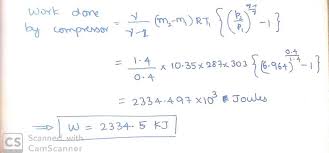 work done
by compressor = γ/(γ-1) (m₂-m₁) RT₁ {(P₂/P₁)^((γ-1)/γ) - 1}
= 1.4/0.4 × 10.35 × 287 × 303 {(6.964)^(0.4/1.4) - 1}
= 2334.497 × 10³ Joules
⇒ W = 2334.5 KJ
CS Scanned with
CamScanner